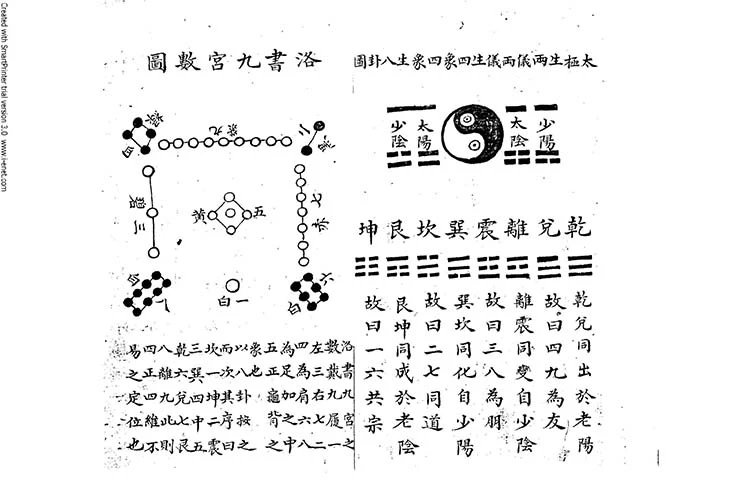 太極生兩儀兩儀生四象四象生八卦圖
少陽
太陰
太陽
少陰
乾兌離震巽坎艮坤
乾兌同出於老陽
故曰四九為友
離震同變自少陰
故曰三八為朋
巽坎同化自少陽
故曰二七同道
艮坤同成於老陰
故曰一六共宗
洛書九宮數圖
綠四
九紫
二黑
三碧
五黃
七赤
八白
一白
六白
洛書九宮之
數戴九履一
左三右七二
四為肩六八
為足加之中
五正龜背之
象也
以八卦按之
而次其序曰
坎一坤二震
三巽四中五
乾六兌七艮
八離九此則
四正四維不
易之定位也
Created with SmartPrinter trial version 3.0 www.i-enet.com